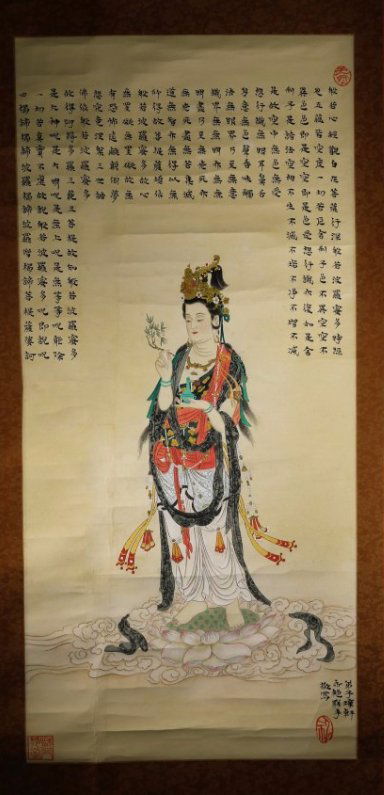 般若心經觀自在菩薩行深般若波羅蜜多時照
見五蘊皆空度一切苦厄舍利子色不異空空不
異色色即是空空即是色受想行識亦復如是舍
利子是諸法空相不生不滅不垢不淨不增不減
是故空中無色無受
想行識無眼耳鼻舌
身意無色聲香味觸
法無眼界乃至無意
識界無無明亦無無
明盡乃至無老死亦
無老死盡無苦集滅
道無智亦無得以無
所得故菩提薩埵依
般若波羅蜜多故心
無罣礙無罣礙故無
有恐怖遠離顛倒夢
想究竟涅槃三世諸
佛依般若波羅蜜多
故得阿耨多羅三藐三菩提故知般若波羅蜜多
是大神呪是大明呪是無上呪是無等等呪能除
一切苦真實不虛故說般若波羅蜜多呪即說呪
曰揭諦揭諦波羅揭諦波羅僧揭諦菩提薩婆訶
弟子
敬寫